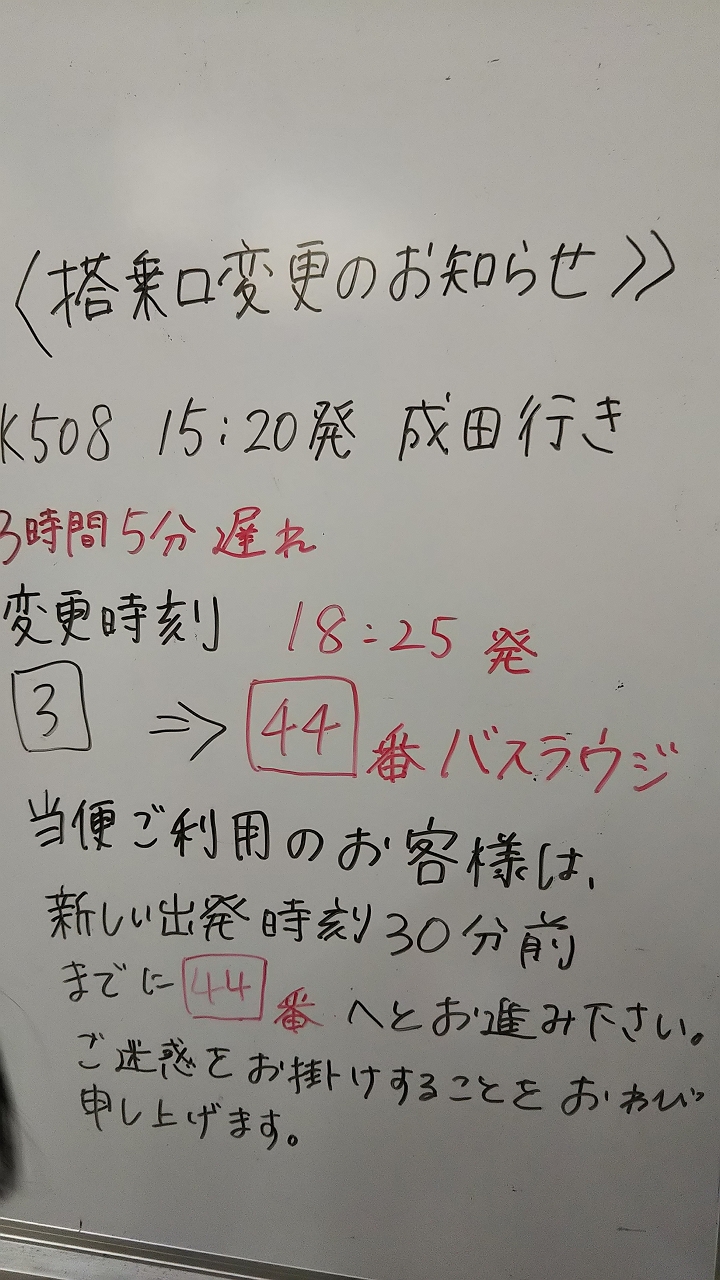 〈搭乗口変更のお知らせ》
K508 15:20発 成田行き
3時間5分遅れ
変更時刻 18:25発
3 ⇒ 44番バスラウジ
当便ご利用のお客様は、
新しい出発時刻30分前
までに44番へとお進み下さい。
ご迷惑をお掛けすることをおわび
申し上げます。